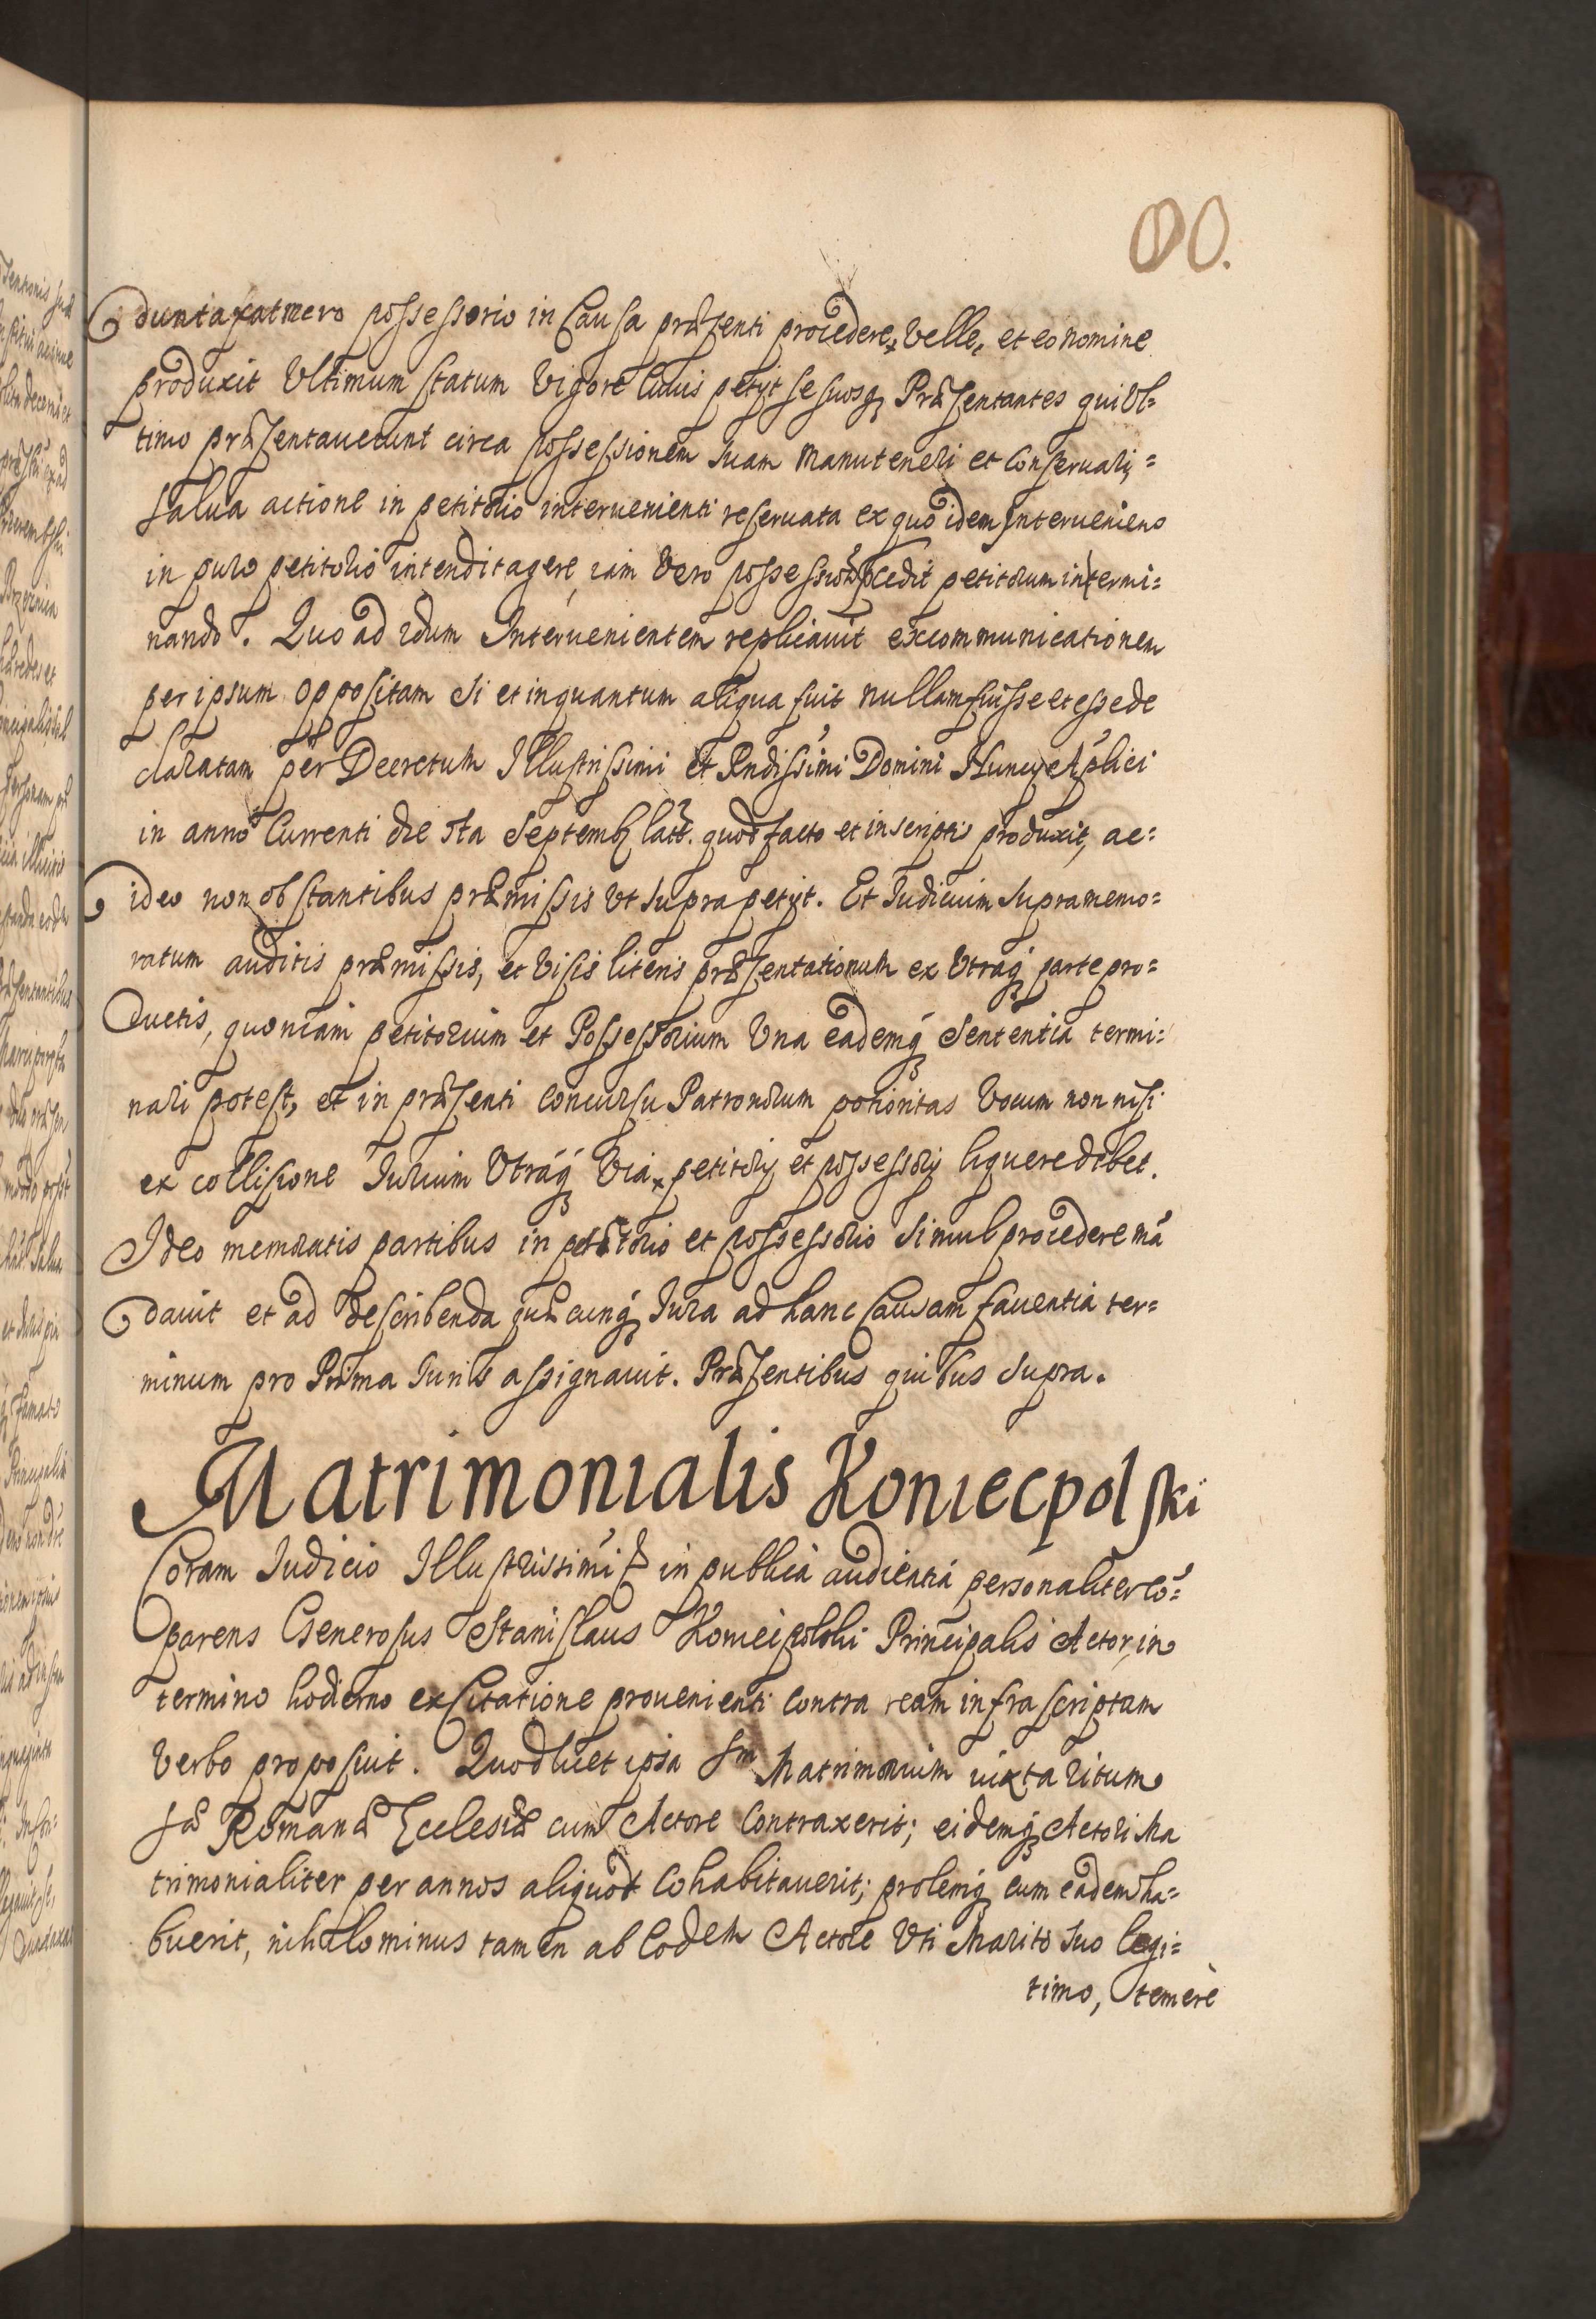 00.
duntaxat mero possessorio in Causa præsenti procedere velle, et eo nomine
produxit Vltimum statum Vigore cuius petijt se suosq₃ Præsentantes qui Vl=
timo præsentauerunt circa possessionem suam manuteneri et Conseruari,=
salua actione in petitorio interuenienti reseruata ex quo idem Interueniens
in puro petitorio intendit agere, iam Vero petitorium in termi=
nando. Quo ad 2dum Interuenientem replicauit excommunicationem
per ipsum oppositam si et inquantum aliqua fuit nullam fuisse et esse de
claratam per Decretum Illustrissimi et Rndissimi Domini Nuncij Aplici
in anno Currenti die 5ta Septemb₃ latt. quod facto et in scriptis produxit, ac=
ideo non obstantibus præmissis Vt supra petijt. Et Iudicium supramemo=
ratum auditis præmissis, et Visis literis præsentationum ex Vtraq₃ parte pro=
ductis, quoniam petitorium et Possessorium Vna eademq₃ Sententia termi=
nari potest, et in præsenti Concursu Patronorum potioritas Vocum non nisi
ex collisione Iurium Vtraq₃ Via petitorij et possessorij liquere debet.
Ideo memoratis partibus in petitorio et possessorio simul procedere mã
dauit et ad describenda quæcunq₃ Iura ad hanc Causam fauentia ter=
minum pro Prima Iuris assignauit. Præsentibus quibus Supra.
Matrimonialis Koniecpolski
Coram Iudicio Illustrissimi in publica audientia personaliter cõ=
parens Generosus Stanislaus Koniecpolski Principalis Actor, in
termino hodierno ex Citatione prouenienti Contra ream infrascriptam
Verbo proposuit. Quod licet ipsa Matrimonium iuxta ritum
Romanæ Ecclesiæ cum Actore Contraxerit; eidemq₃ Actori Ma
trimonialiter per annos aliquot Cohabitauerit; prolemq₃ cum eadem ha=
buerit, nihilominus tamen ab Eodem Actore Vti Marito suo legi=
timo, temerè